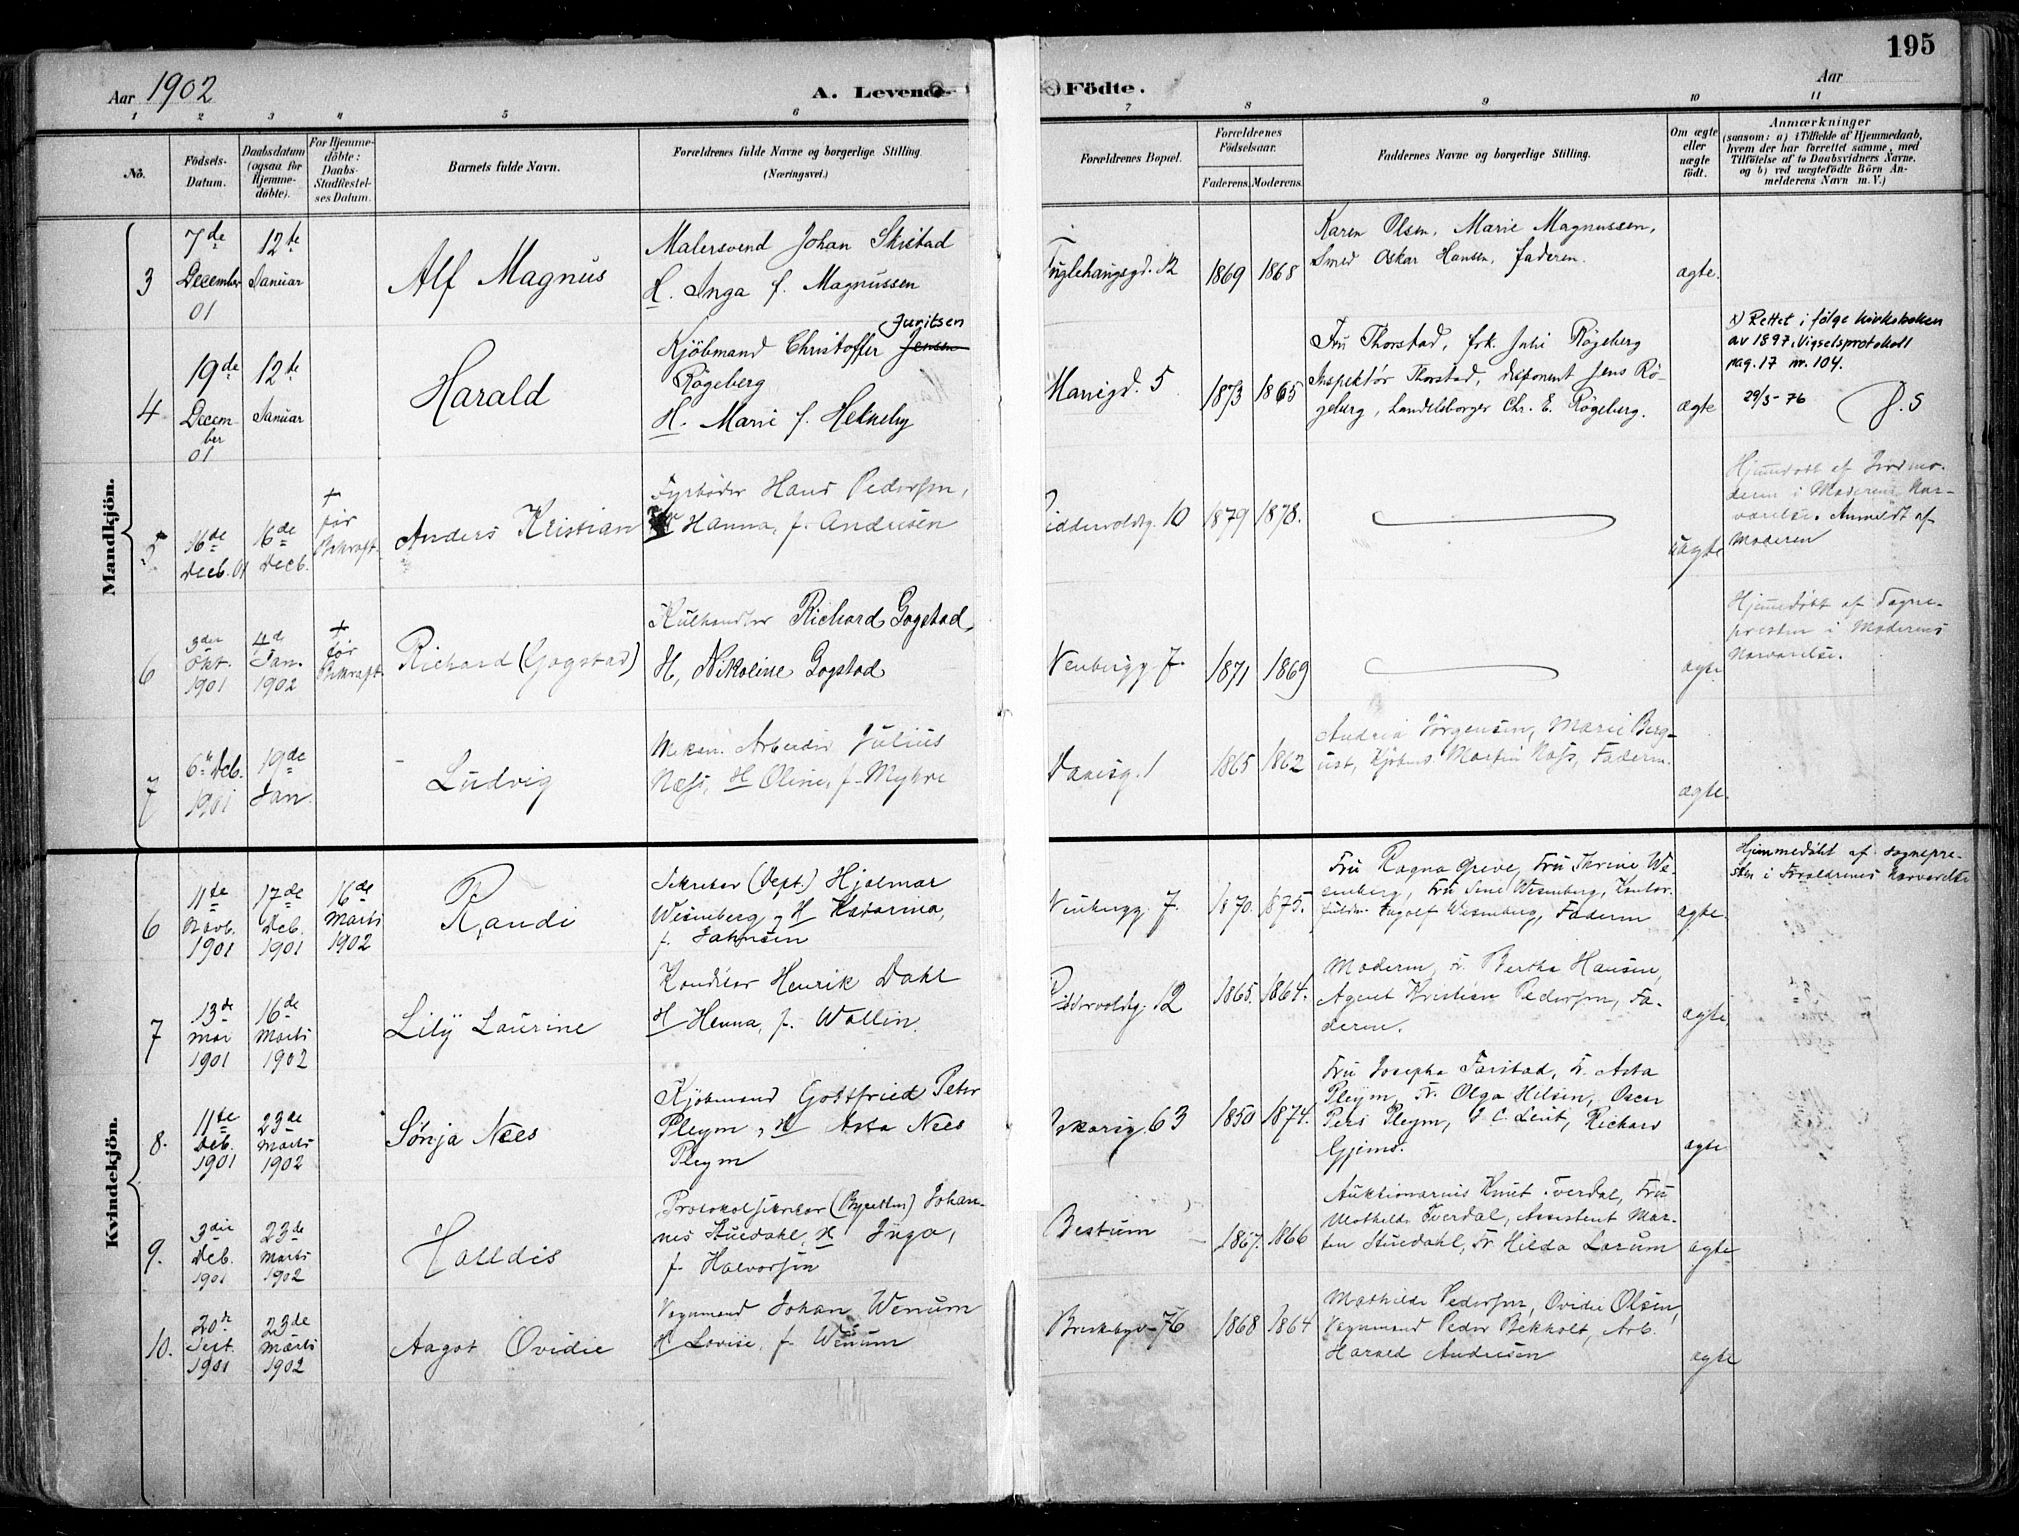 195
Aar 1902
A. Levende Födte.
Aar
1 2 3 4 5 6 7 8 9 10 11
No.
Födsels-
Datum.
Daabsdatum
(ogsaa for
Hjemme-
döbte).
For Hjemme-
döbte:
Daabs-
Stadfæstel-
ses Datum.
Barnets fulde Navn.
Forældrenes fulde Navne og borgerlige Stilling.
(Næringsvei.)
Forældrenes Bopæl.
Forældrenes
Födselsaar.
Faderens. Moderens.
Faddernes Navne og borgerlige Stilling.
Om ægte
eller
uægte
födt.
Anmærkninger
(saasom: a) i Tilfælde af Hjemmedaab,
hvem der har forrettet samme, med
Tilföielse af to Daabsvidners Navne,
og b) ved uægtefödte Börn An-
melderens Navn m. V.)
Mandkjön.
3
7de
December
01
12te
Januar
Alf Magnus
Malersvend Johan Skistad
H. Inga f. Magnussen
Fuglehaugsgd. 12
1869 1868
Karen Olsen, Marie Magnussen,
Smed Oskar Hansen, faderen.
ægte.
4
19de
Decem-
ber
01
12te
Januar
Harald
Juritsen
Kjöbmand Christoffer Jensen
Rögeberg
H. Marie f. Hekneby
Mariegd. 5
1873 1865
Fru Thorstad, frk. Juli Rögeberg
Inspektör Thorstad, disponent Jens Rö-
geberg, Landelsborger Chr. E. Rögeberg.
ægte
x) Rettet i følge kirkeboken
av 1897, Vigselsprotokoll
pag. 17 nr. 104.
29/3-76 P.S
5
16de
Decb. 01
16de
Decb.
†
før
Bekræft.
Anders Kristian
Fyrbøder Hans Pedersen,
Hanna, f. Andersen
Riddervoldsg. 10
1879 1878.
uægte
Hjemmedøbt af Jordmo-
deren i Moderens Nær-
værelse. Anmeldt af
Moderen
6
3die
Okt.
1901
4de
Jan.
1902
†
før
Bekræft.
Richard (Gogstad)
Kulhandler Richard Gogstad,
H, Nikoline Gogstad
Neubergg. 7.
1871 1869
ægte
Hjemmedøbt af Sogne-
presten i Moderens
Nærværelse.
7
6te Deb.
1901
19de
Jan.
Ludvig
Mekan. Arbeider Julius
Næss, H Oline, f. Myhre
Daasg. 1
1865 1862
Andrea Jörgensen, Marie Berg-
ust, Kjøbm. Martin Næss, Faderen.
ægte.
Kvindekjön.
6
11te
Novb.
1901
17de
Deb.
1901
16de
Marts
1902
Randi
Sekretær (Dept.) Hjalmar
Wesenberg, H Katarina,
f. Jahnsen
Neubergg. 7.
1870. 1875.
Fru Ragna Greve, Fru Thrine We-
senberg, Fru Sene Wesenberg, Kontor-
fuldm. Ingolf Wesenberg, Faderen
ægte.
Hjemmedøbt af Sognepre-
sten i Forældrenes Nærværelse
7
13de
Mar
1901
16de
Marts
1902
Lily Laurine
Konditor Henrik Dahl
H Henna, f. Wallin.
Riddervoldsg. 12
1865. 1864.
Moderen, Fr. Bertha Hansen,
Agent Kristian Pedersen, Fa-
deren.
ægte.
8.
11te
Deb.
1901
23de
Marts
1902
Sønja Nees
Kjøbmand Gottfried Peter
Pleym, H Asta Nees
Pleym
Oskarsg. 63
1850 1874.
Fru Josepha Farstad, Fr. Asta
Pleym, Fr. Olga Hilsen, Oscar
Pers Pleym, J. C. Leut, Richard
Gjems.
ægte
9.
3die
Deb.
1901
23de
Marts
1902
Halldis
Protokolsekretær (Byretten) Johan-
nes Stuedahl, H Inga,
f. Halvorsen
Bestum
1867. 1866
Auktionarius Knut Tverdal, Fru
Mathilde Tverdal, Assistent Mar-
ten Stuedahl, Fr. Hilda Larum
ægte
10.
20de
Sept.
1901
23de
Marts
1902
Aagot Ovidie
Vognmand Johan Wenum
H Lovise, f. Wenum
Briskebyv. 76
1868 1864
Mathilde Pedersen, Ovidie Olsen,
Vognmand Peder Bekholt, Arb.
Harald Andersen
ægte